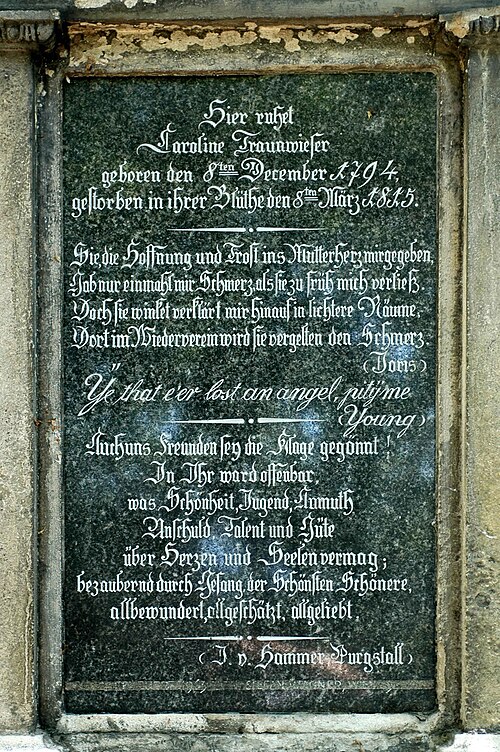 Hier ruhet
Caroline Traunwieser
geboren den 8ten December 1794,
gestorben in ihrer Blüthe den 8ten März 1815.
Sie, die Hoffnung und Trost ins Mutterherz mir gegeben,
Gab nur einmahl mir Schmerz, als sie zu früh mich verließ.
Doch sie winket verklärt mir hinauf in lichtere Räume,
Dort im Wiederverein wird sie vergelten den Schmerz.
(Doris)
"Ye that e'er lost an angel, pity me
(Young)
Auch uns Freunden sey die Klage gegönnt!
In Ihr ward offenbar,
was Schönheit, Jugend, Anmuth
Unschuld, Talent und Güte
über Herzen und Seelen vermag;
bezaubernd durch Gesang, der Schönsten Schönere,
allbewundert, allgeschätzt, allgeliebt.
(J. v. Hammer-Purgstall)